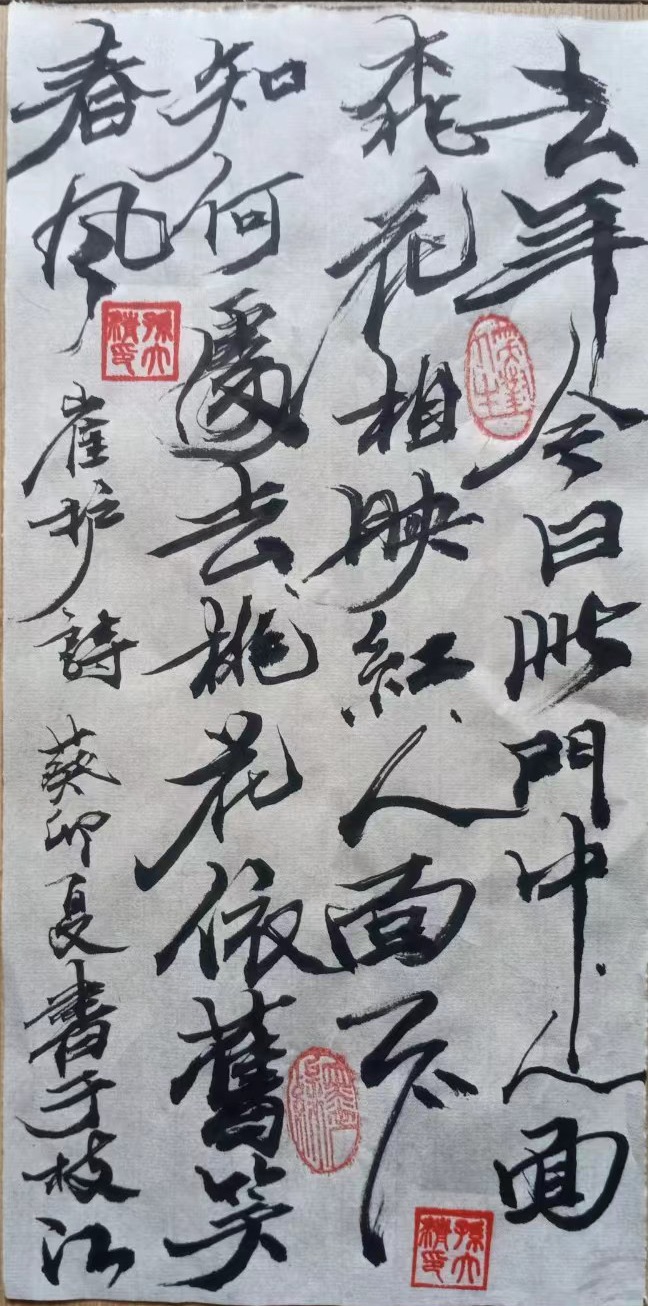 去年今日此門中人面
桃花相映紅人面不
知何處去桃花依舊笑
春风
崔护詩
癸卯夏書于枝江